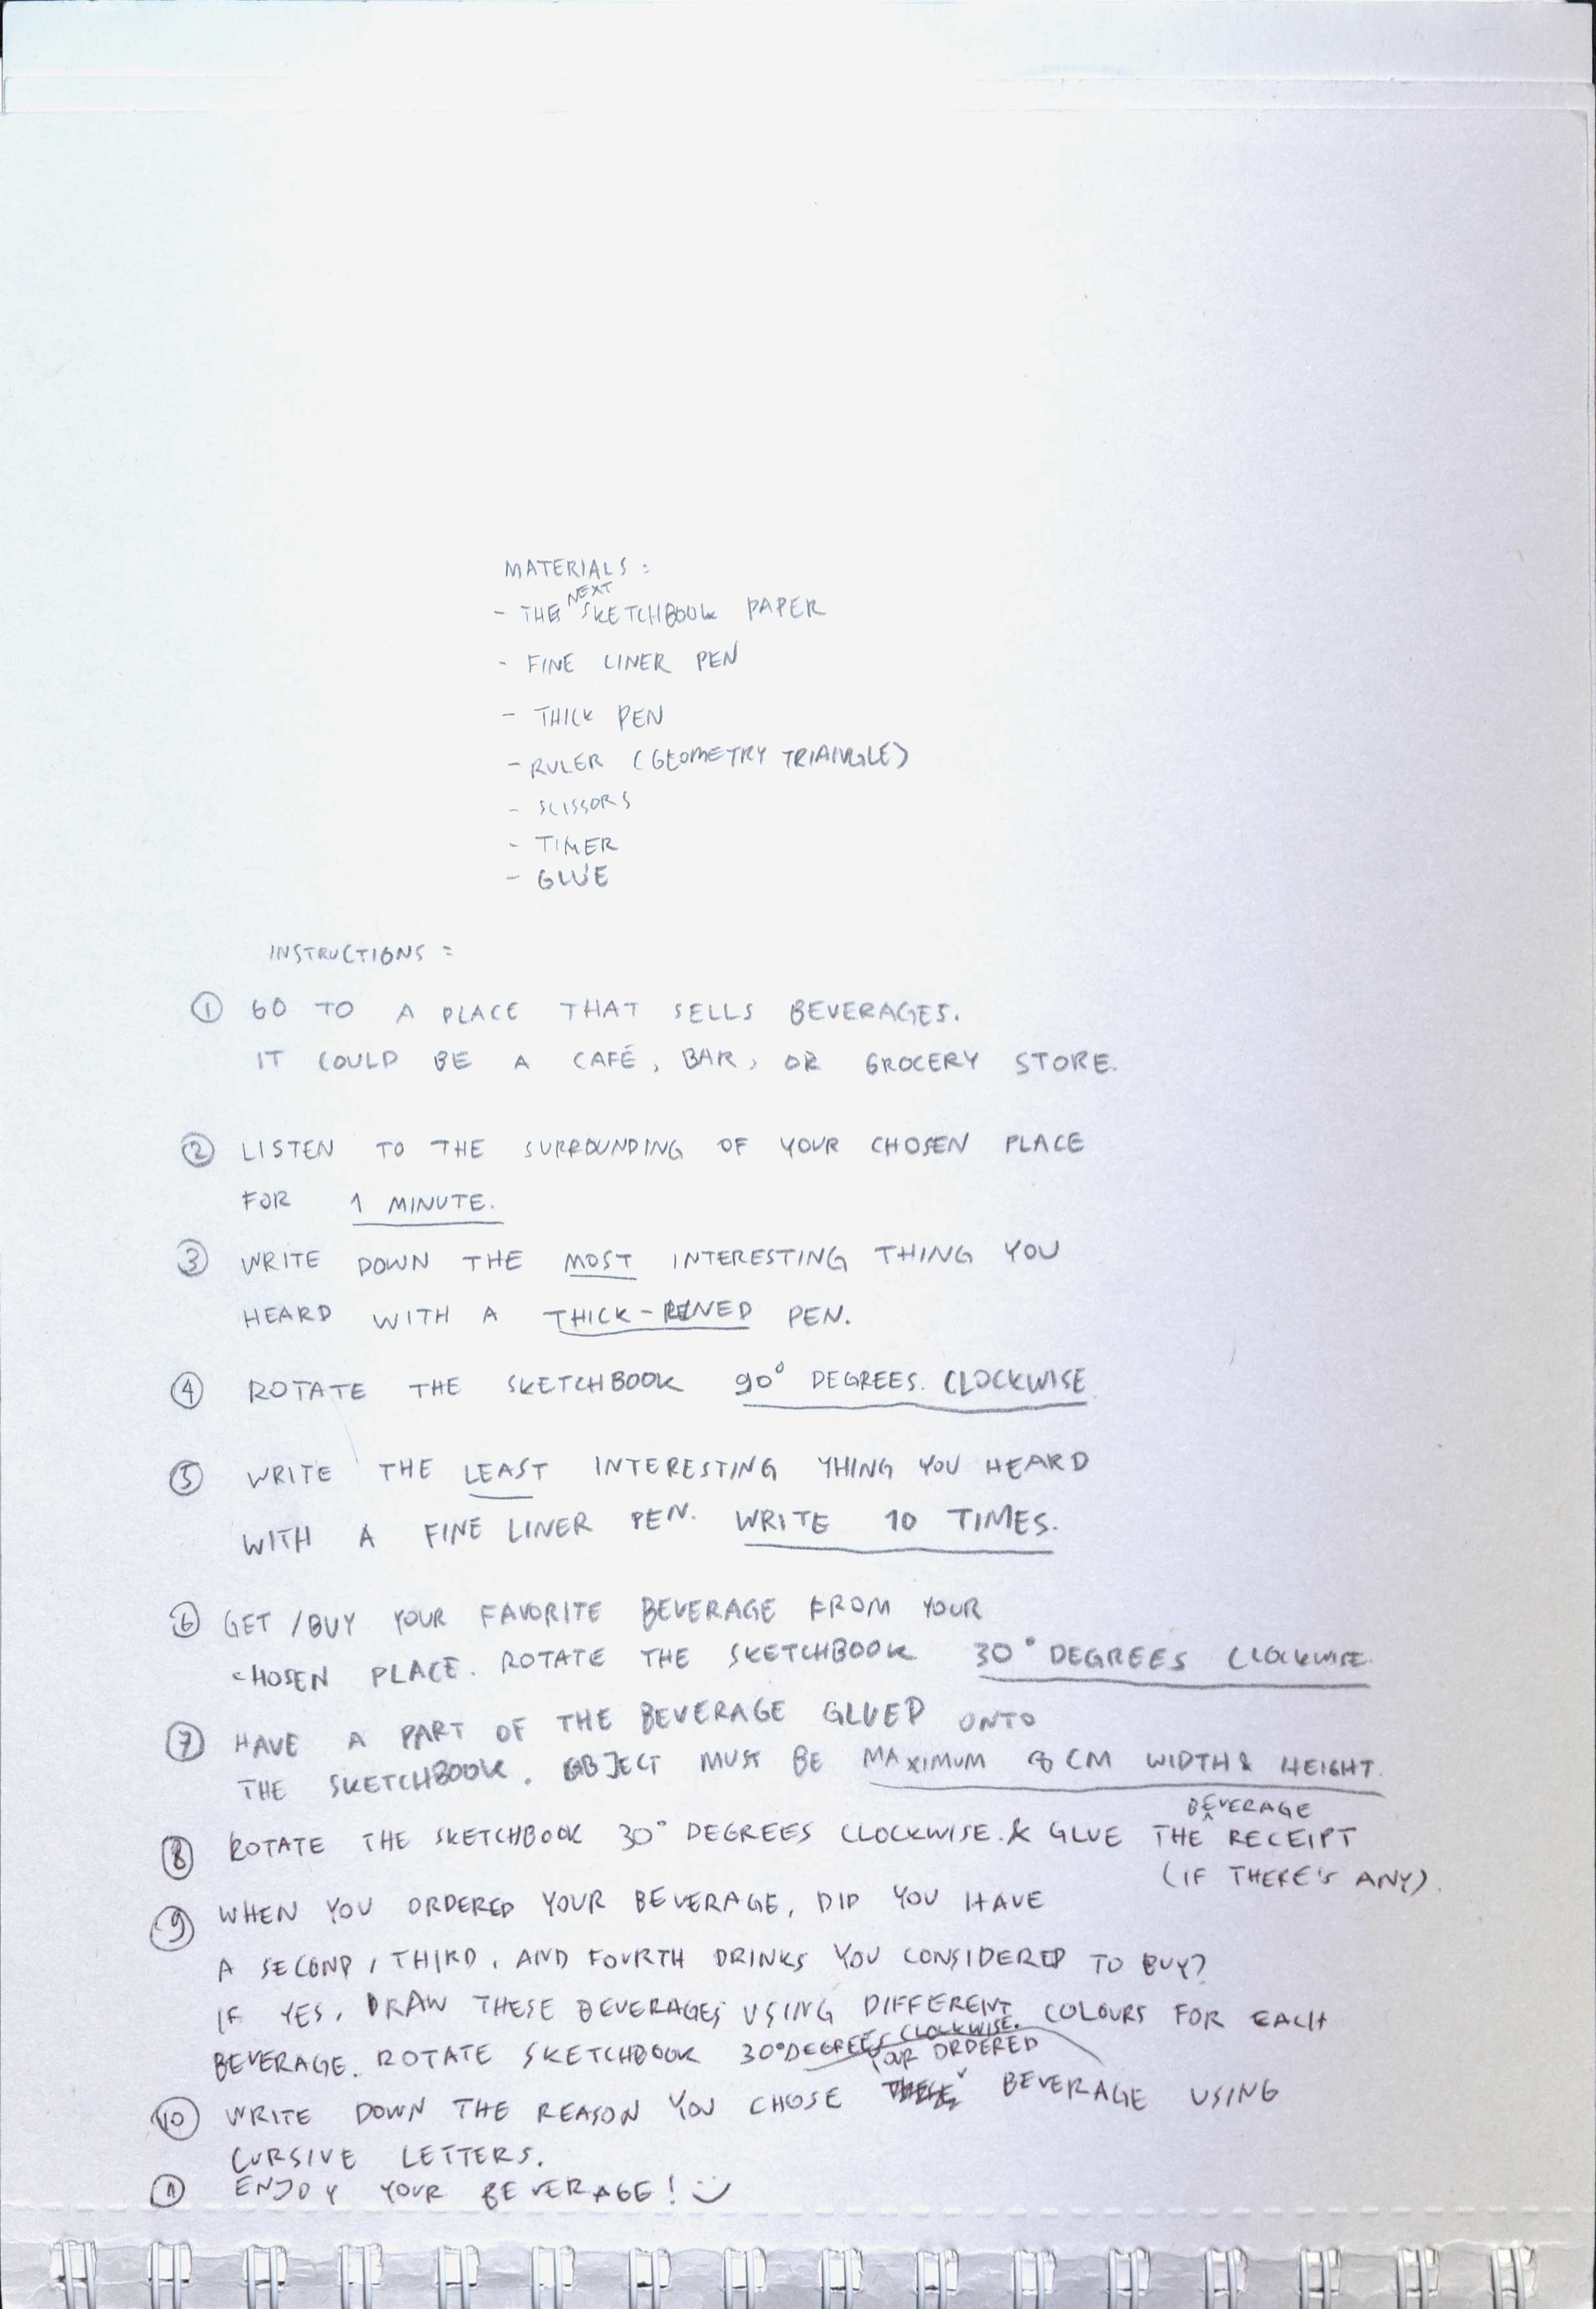 MATERIALS :
- THE NEXT SKETCHBOOK PAPER
- FINE LINER PEN
- THICK PEN
- RULER (GEOMETRY TRIANGLE)
- SCISSORS
- TIMER
- GLUE
INSTRUCTIONS :
1 GO TO A PLACE THAT SELLS BEVERAGES.
IT COULD BE A CAFÉ, BAR, OR GROCERY STORE.
2 LISTEN TO THE SURROUNDING OF YOUR CHOSEN PLACE
FOR 1 MINUTE.
3 WRITE DOWN THE MOST INTERESTING THING YOU
HEARD WITH A THICK- PEN.
4 ROTATE THE SKETCHBOOK 90° DEGREES. CLOCKWISE
5 WRITE THE LEAST INTERESTING THING YOU HEARD
WITH A FINE LINER PEN. WRITE 10 TIMES.
6 GET /BUY YOUR FAVORITE BEVERAGE FROM YOUR
CHOSEN PLACE. ROTATE THE SKETCHBOOK 30° DEGREES CLOCKWISE.
7 HAVE A PART OF THE BEVERAGE GLUED ONTO
THE SKETCHBOOK. OBJECT MUST BE MAXIMUM 8 CM WIDTH & HEIGHT.
8 ROTATE THE SKETCHBOOK 30° DEGREES CLOCKWISE. & GLUE THE BEVERAGE RECEIPT
(IF THERE'S ANY).
9 WHEN YOU ORDERED YOUR BEVERAGE, DID YOU HAVE
A SECOND, THIRD, AND FOURTH DRINKS YOU CONSIDERED TO BUY?
IF YES, DRAW THESE BEVERAGES USING DIFFERENT COLOURS FOR EACH
BEVERAGE. ROTATE SKETCHBOOK 30° DEGREES CLOCKWISE.
10 WRITE DOWN THE REASON YOU CHOSE YOUR ORDERED BEVERAGE USING
CURSIVE LETTERS.
11 ENJOY YOUR BEVERAGE! :)